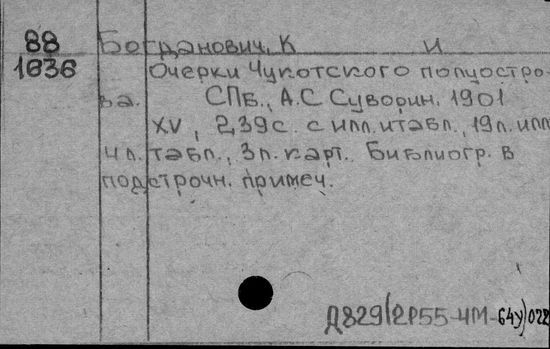 88 Богданович, К И
1036 Очерки Чукотского полуостро-
ва. СПб., А.С Суворин, 1901
XV, 239с. с илл. и табл., 19л. илл
4л. табл., 3л. карт. Библиогр. в
подстрочн. примеч.
Д829(2Р55-4М-64у)022